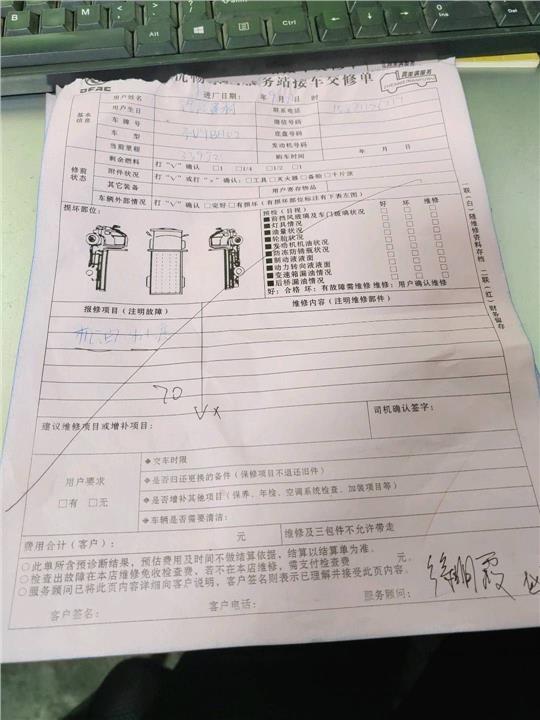 DFAC
服务站接车交修单
真车满服务
用户姓名 进厂日期： 年 月 日 时
基本信息
用户生日 联系电话
车牌号 微信号码
车型 底盘号码
当前里程 发动机号码
修前状态
剩余燃料 打"V"确认 □1 □1/4 □1/2 □1 购车时间 年 月 日
附件状况 打"V"或打"×"确认：□工具□灭火器□备胎□千斤顶
其它装备 用户寄存物品
车辆外部情况 打"V"确认□完好□有损坏（有损坏部位标注有下表左图）
损坏部位： 预检（目视） 好 坏 维修
■前挡风玻璃及车门玻璃状况 □ □ □
■灯具情况 □ □ □
■油量状况 □ □ □
■轮胎状况 □ □ □
■发动机机油状况 □ □ □
■防冻防锈瓶状况 □ □ □
■制动液液面 □ □ □
■动力转向液液面 □ □ □
■变速箱漏油情况 □ □ □
■后桥漏油情况 □ □ □
好：合格 坏：有故障需维修 维修：用户确认维修
一联（白）随维修资料存档 二联（红）财务留存
报修项目（注明故障） 维修内容（注明维修部件）
机油
70
建议维修项目或增补项目： 司机确认签字：
用户要求
□有 □无
◆交车时限
◆是否归还更换的备件（保修项目不退还旧件）
◆是否增补其他项目（保养、年检、空调系统检查、加装项目等）
◆车辆是否需要清洁：
费用合计（客户）： 元 维修及三包件不允许带走
○此单所含预诊断结果，预估费用及时间不做结算依据，结算以结算单为准。
○检查出故障在本店维修免收检查费，若不在本店维修，需支付检查费 元。
○服务顾问已将此页内容详细向客户说明，客户签名则表示已理解并接受此页内容。
客户签名： 客户电话： 服务顾问：